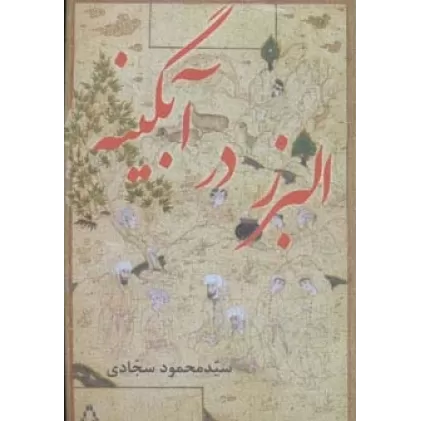 البرز در آبگینه
سیّدمحمود سجّادی